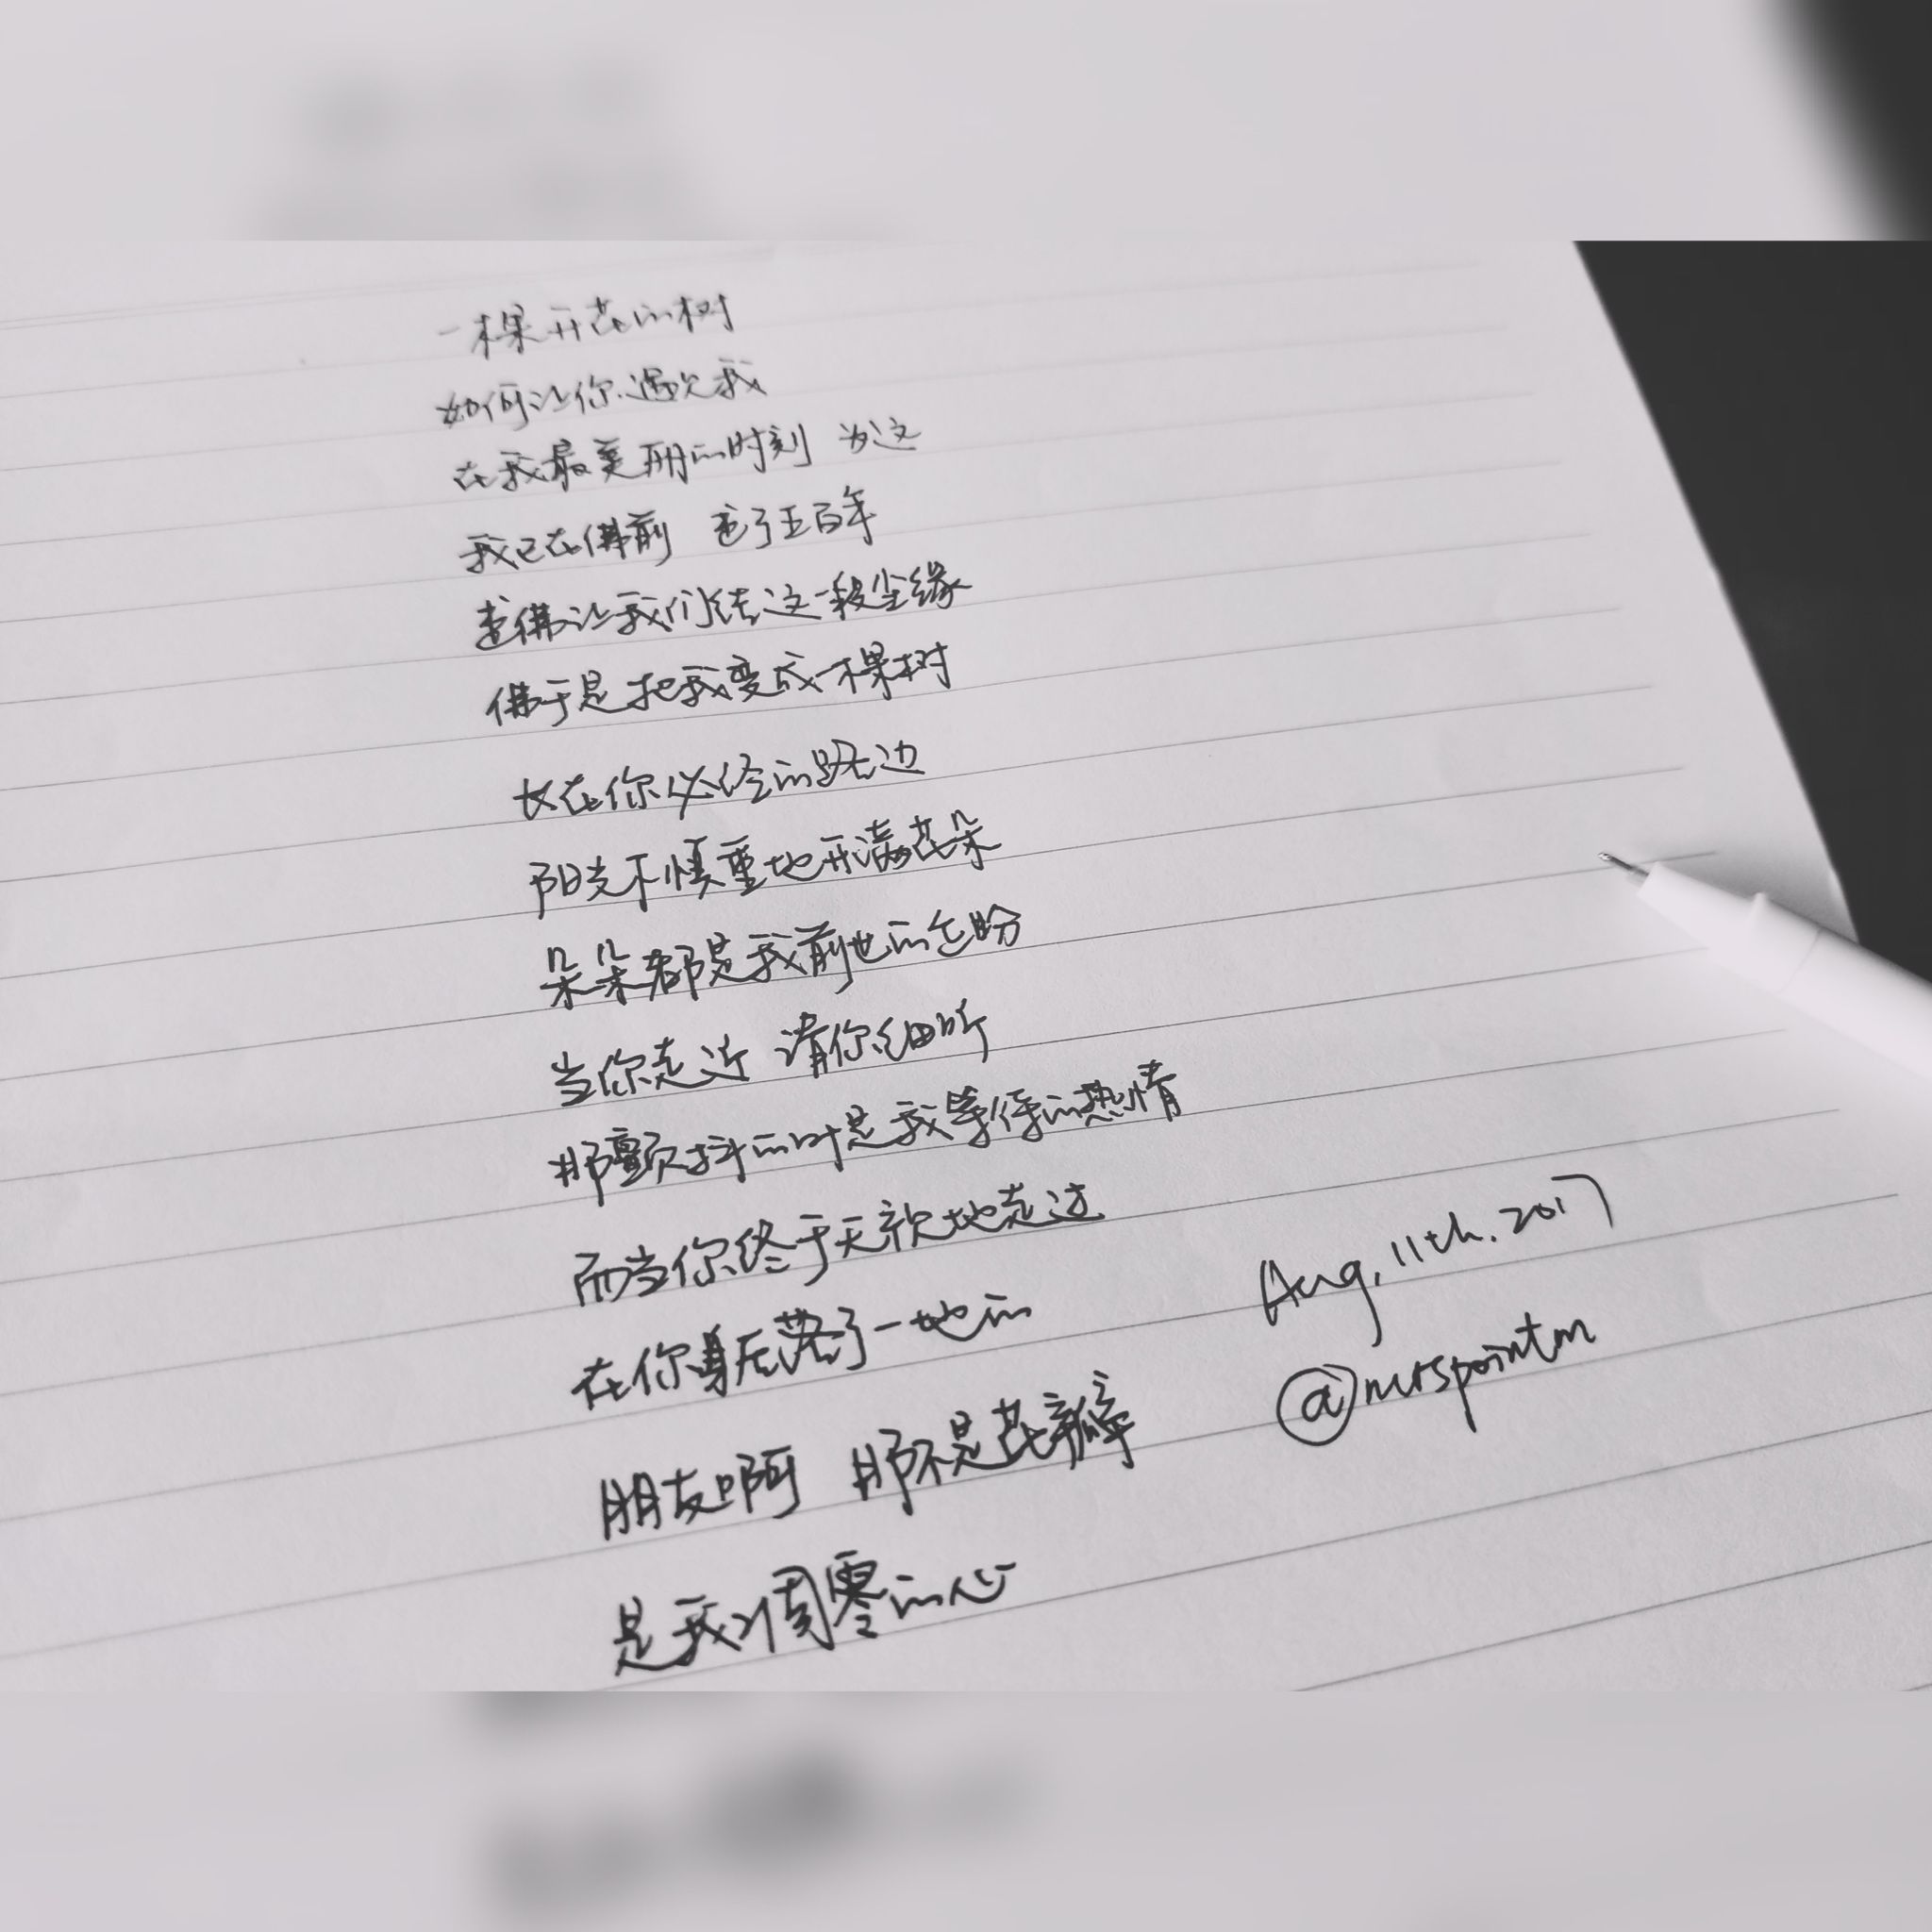 一棵开花的树
如何让你遇见我
在我最美丽的时刻 为这
我已在佛前 求了五百年
求佛让我们结这一段尘缘
佛于是把我变成一棵树
长在你必经的路边
阳光下慎重地开满花朵
朵朵都是我前世的企盼
当你走近 请你细听
那颤抖的叶是我等待的热情
而当你终于无视地走过
在你身后落了一地的
朋友啊 那不是花瓣
是我凋零的心
Aug. 11th. 2017
@mrspointm